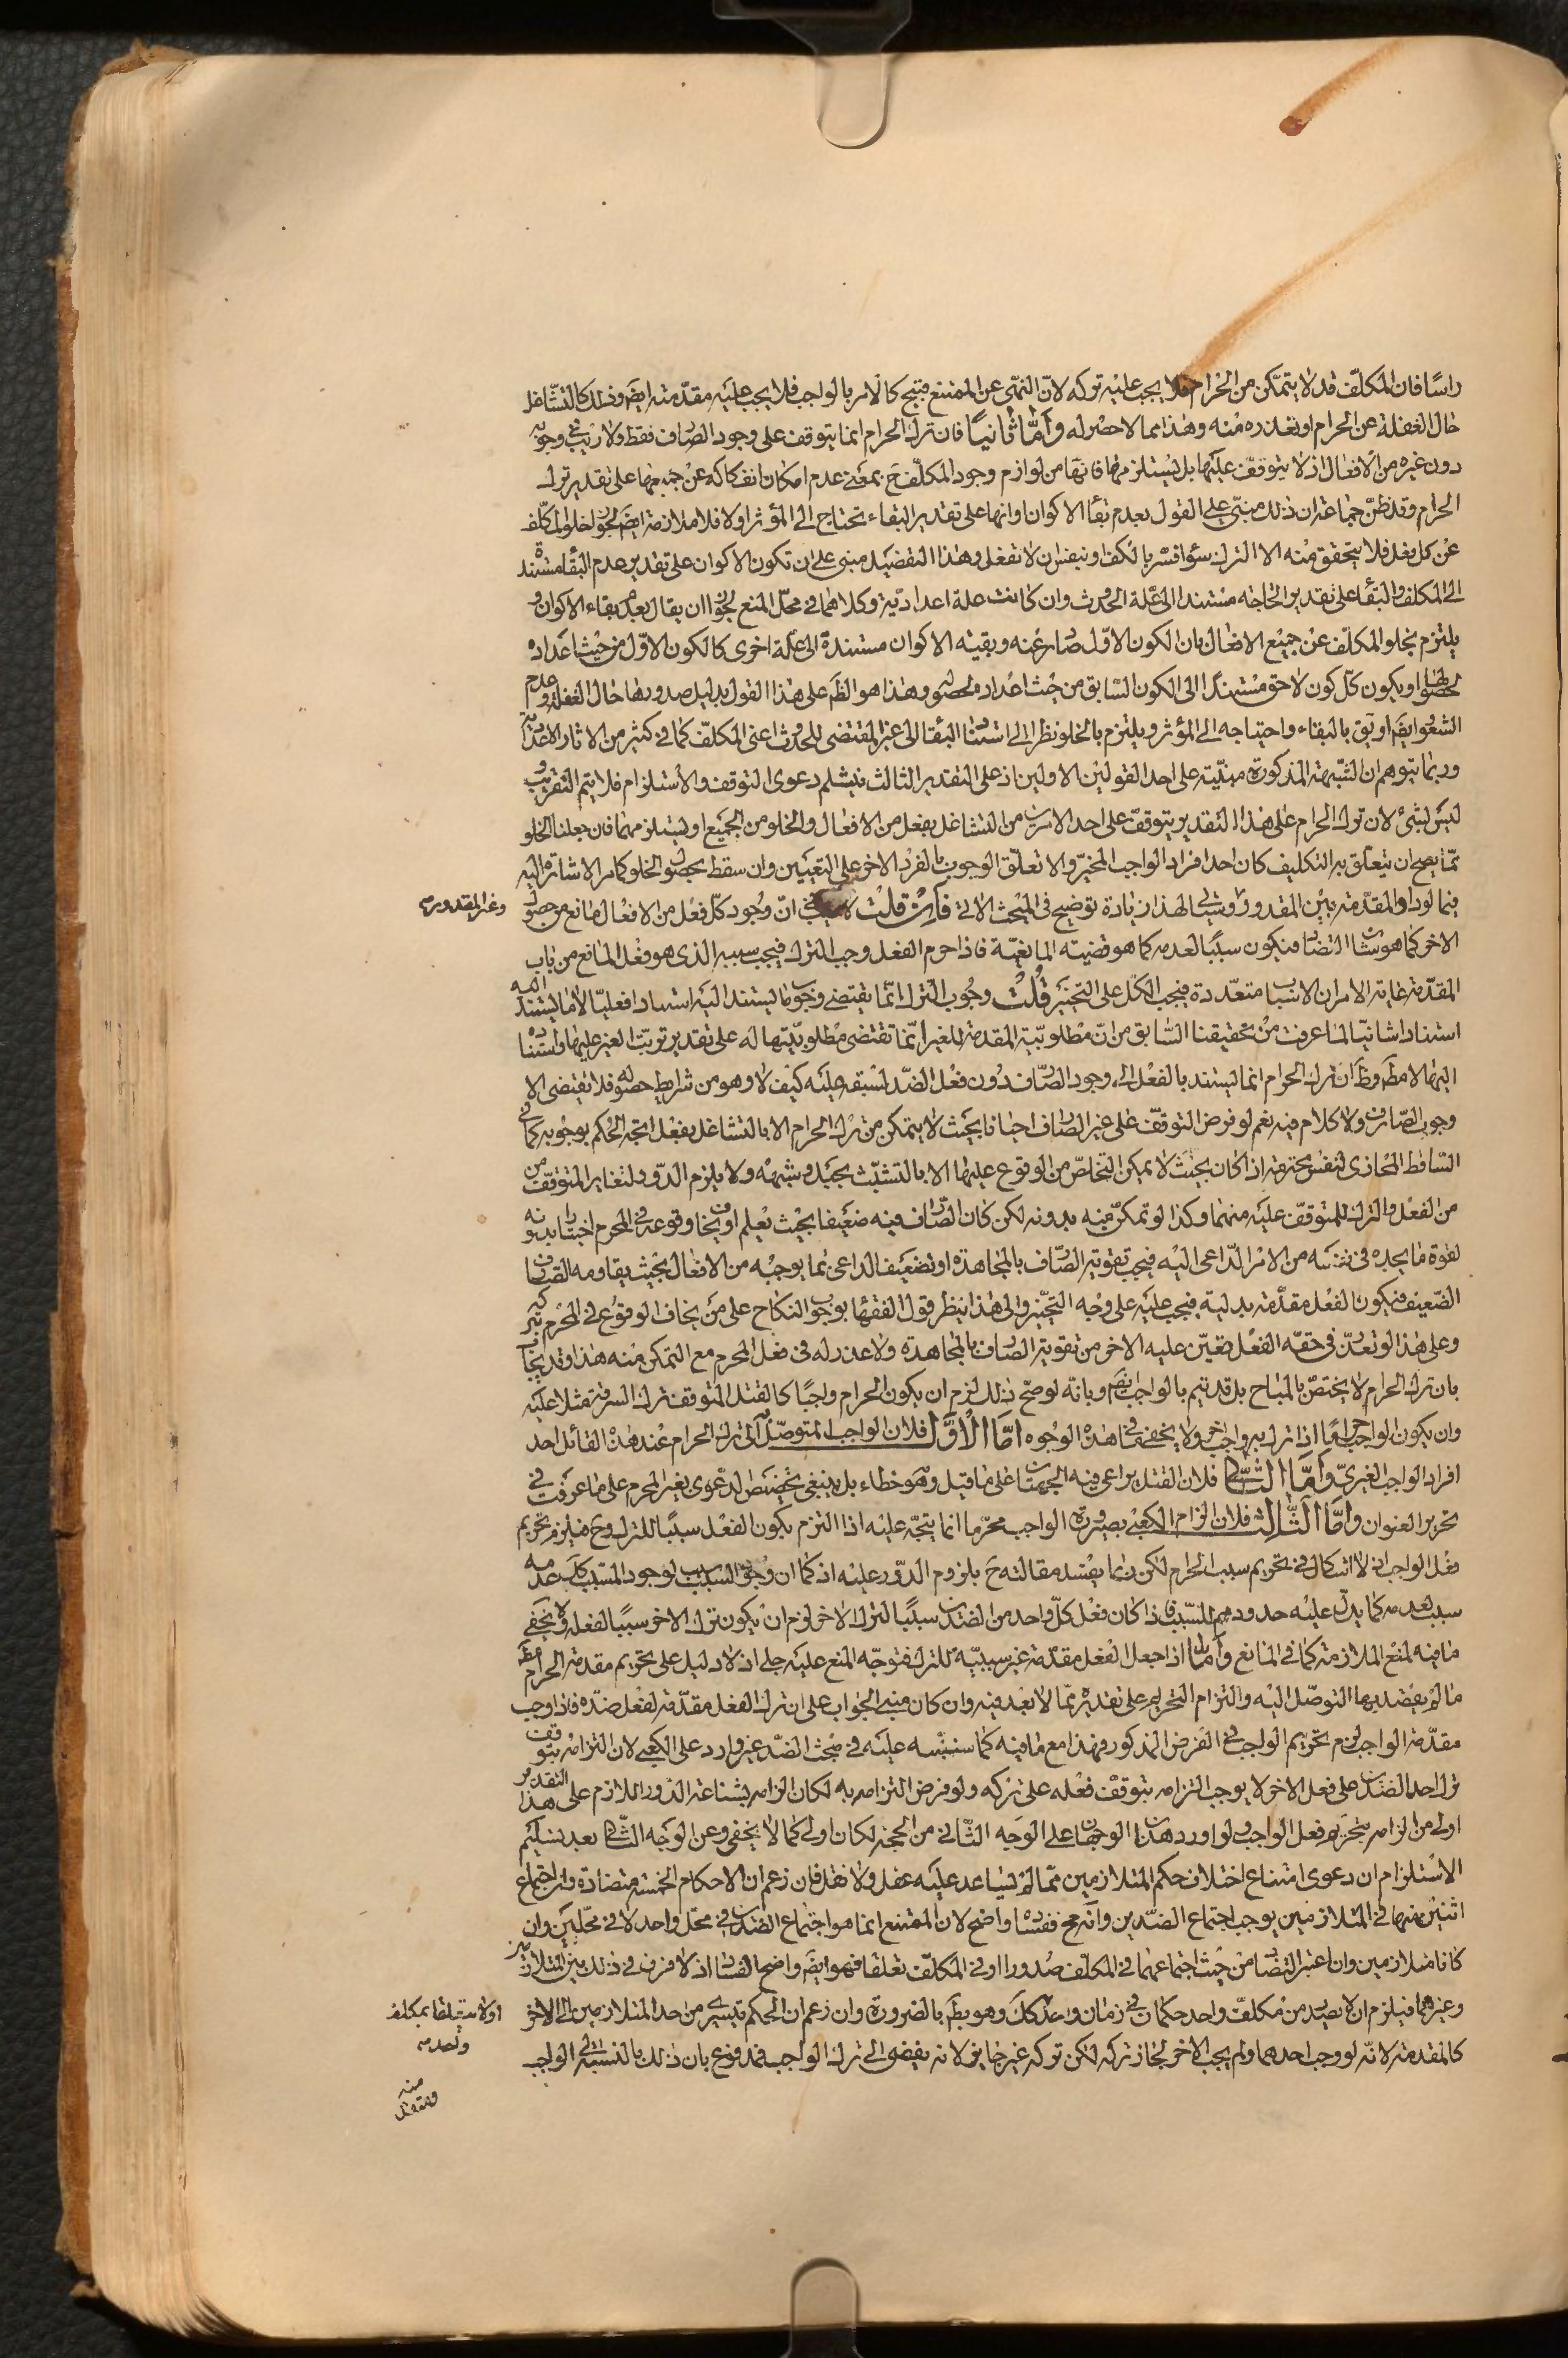 راسًا فان المكلّف قد لا يتمكن من الحرام فلا يجب عليه تركه لانّ النهى عن الممتنع قبيح كالامر بالواجب فلا يجب عليه مقدّمته ايضَ وذلك كالتشاغل
حال الغفلة عن الحرام او تعذره منه وهذا مما لا حصر له وَأمّا ثانيًا فان ترك الحرام انما يتوقف على وجود الصارف فقط ولا ريب فى وجوبه
دون غيره من الافعال اذ لا يتوقف عليها بل يستلزم منها فانها من لوازم وجود المكلّف حَ بمعنى عدم امكان انفكاكه عن جميعها على تقدير ترك
الحرام وقد ظنّ جماعة ان ذلك مبنىّ على القول بعدم بقاء الاكوان وانها على تقدير البقاء تحتاج الى المؤثر اولا فلا ملازمة ايضَ لجواز خلو المكلّف
عن كل فعل فلا يتحقق منه الا الترك سواء فسّر بالكف او بنفس ان لا تفعل وهذا التفصيل مبنى على ان تكون الاكوان على تقدير عدم البقاء مستندة
الى المكلف والبقاء على تقدير الحاجة مستندا الى علّة الحدوث وان كانت علة اعدادّية وكلاهما فى محلّ المنع لجواز ان يقال بعدم بقاء الاكوان و
يلتزم بخلو المكلّف عن جميع الافعال بان الكون الاوّل صادر عنه وبقية الاكوان مستندة الى علّة اخرى كالكون الاوّل من حيث اعداده
لحصولها او يكون كلّ كون لاحق مستندًا الى الكون السّابق من حيث اعداده لحصوله وهذا هو الظَ على هذا القول بدليل صدورها حال الغفلة وعدم
الشعور ايضَ او يَق بالبقاء واحتياجه الى المؤثر ويلتزم بالخلو نظرا الى استناد البقاء الى غير المقتضى للحدوث اعنى المكلّف كما فى كثير من الاثار الاعدادية
وربما يتوهم ان الشبهة المذكورة مبنّية على احد القولين الاولين اذ على التقدير الثالث نيسلّم دعوى التوقف والاستلزام فلا يتم التقريب و
ليس بشئ لان ترك الحرام على هذا التقدير يتوقّف على احد الامرين من التشاغل بفعل من الافعال والخلو من الجميع او يستلزم منهما فان جعلنا الخلو
ممّا يصح ان يتعلّق به التكليف كان احد افراد الواجب المخيّر والا تعلّق الوجوب بالفرد الاخر على التعيين وان سقط بحصول الخلو كما مر الاشارة اليه
فيما لو دار المقدّمة بين المقدور وغير المقدور وسياتى لهذا زيادة توضيح فى المبحث الاتى فَان قلت لا ريب فى انّ وجود كلّ فعل من الافعال مانع من حصول
الاخر كما هو شان التضاد فيكون سببًا لعدمه كما هو قضيته المانعيّة فاذا حرم الفعل وجب الترك فيجب سببه الذى هو فعل المانع من باب
المقدّمة غاية الامر ان الاسباب متعدّدة فيجب الكل على التخيير قُلتُ وجُوب الترك انّما يقتضى وجوب ما يستند اليه استنادا فعليّا لا ما يستند اليه
استنادا شانيّا لما عرفت من تحقيقنا السّابق من انّ مطلوبيّة المقدمة للغير انّما تقتضى مطلوبيّتها له على تقدير ترتّب الغير عليها واستناده
اليها لا مطَ وظَ انّ ترك الحرام انما يستند بالفعل الى وجود الصّارف دون فعل الضّد لسبقه عليه كيف لا وهو من شرايط حصوله فلا يقتضى الا
وجوب الصّارف ولا كلام فيه نعم لو فرض التوقّف على غير الصّارف احيانا بحيث لا يتمكن من ترك الحرام الا بالتشاغل بفعل اتجه الحكم بوجوبه كما فى
السّاقط المحاذى لنفس محترمة اذا كان بحيث لا يمكن التخلّص من الوقوع عليها الا بالتشبّث بحبل وشبهه ولا يلزم الدّور لتغاير المتوقّف من
من الفعل والترك للمتوقّف عليه منهما وكذا لو تمكن منه بدونه لكن كان الصّارف فيه ضعيفا بحيث يعلم او يخاف وقوعه فى المحرم اختيارا بدونه
لقوة ما يجده فى نفسه من الامر الدّاعى اليه فيجب تقوية الصّارف بالمجاهدة او تضعيف الداعى بما يوجبه من الافعال بحيث يقاومه الصّارف
الضّعيف فيكون الفعل مقدّمة بدليّة فيجب عليه على وجه التخيّير والى هذا ينظر قول الفقهاء بوجوب النكاح على من يخاف الوقوع فى المحرم بتركه
وعلى هذا لو تعذّر فى حقه الفعل تعيّن عليه الاخر من تقوية الصّارف بالمجاهدة ولا عذر له فى فعل المحرم مع التمكن منه هذا وقد يجاب
بان ترك الحرام لا يختصّ بالمباح بل قد يتم بالواجب ايضَ وبانّه لو صحّ ذلك لزم ان يكون الحرام واجبًا كالقتل المتوقف ترك السرقة مثلا عليه
وان يكون الواجب حرامًا اذا ترك به واجب اخر ولا يخفى ما فى هذه الوجوه امّا الأوّل فلان الواجب المتوصّل به الى ترك الحرام عند هذا القائل احد
افراد الواجب الغيرىّ وَأمّا الثّانى فلان القتل يراعى فيه الجهتان على ما قيل وهو خطاء بل ينبغى تخصيص الدعوى بغير المحرم على ما عرفت فى
تحرير العنوان وَأمّا الثّالث فلان الزام الكعبى بصيرورة الواجب محرّما انما يتجّه عليه اذا التزم بكون الفعل سببًا للترك وحَ فيلزم تحريم
فعل الواجب اذ لا اشكال فى تحريم سبب الحرام لكن ربّما يفسد مقالته حَ بلزوم الدّور عليه اذ كما ان وجود السّبب سبب لوجود المسبّب كذلك عدمه
سبب لعدمه كما يدلّ عليه حدودهم للسّبب فاذا كان فعل كلّ واحد من الضدين سببًا لترك الاخر لزم ان يكون ترك الاخر سببًا لفعله ولا يخفى
ما فيه لمنع الملازمة كما فى المانع وَأمّا اذا جعل الفعل مقدّمة غير سببيّة للترك فتوجّه المنع عليه جلى اذ لا دليل على تحريم مقدمة الحرام مطَ
ما لم يقصد بها التوصّل اليه والتزام التحريم على تقديره ممّا لا بعد فيه وان كان مبنى الجواب على ان ترك الفعل مقدّمة لفعل ضدّه فاذا وجب
مقدّمة الواجب لزم تحريم الواجب فى الفرض المذكور فهذا مع ما فيه كما سننبّه عليه فى مبحث الضدّ غير وارد على الكعبى لان التزامه بتوقف
ترك احد الضدين على فعل الاخر لا يوجب التزامه بتوقف فعله على تركه ولو فرض التزامه به لكان الزامه بشناعة الدّور اللازم على هذا التقدير
اولى من الزامه بتحريم فعل الواجب ولو اورد هذان الوجهان على الوجه الثّانى من الحجة لكان اولى كما لا يخفى وعن الوجه الثّانى بعد تسليم
الاستلزام ان دعوى امتناع اختلاف حكم المتلازمين ممّا لم يساعد عليه عقل ولا نقل فان زعم ان الاحكام الخمسة متضادة وان اجتماع
اثنين منها فى المتلازمين يوجب اجتماع الضدّين وانّه مح ففساده واضح لان الممتنع انما هو اجتماع الضدّين فى محلّ واحد لا فى محلّين وان
كانا متلازمين وان اعتبر التضاد من حيث اجتماعهما فى المكلّف صدورا او فى المكلّف تعلقا فهو ايضَ واضح الفساد اذ لا فرق فى ذلك بين المتلازمين
وغيرهما فيلزم ان لا يصدر من مكلّف واحد حكمان فى زمان واحد كك وهو بطَ بالضرورة وان زعم ان الحكم يسرى من احد المتلازمين الى الاخر
كالمقدمة لانّه لو وجب احدهما ولم يجب الاخر لجاز تركه لكن تركه غير جايز لانه يفضى الى ترك الواجب فمدفوع بان ذلك بالنسبة الى الواجب
وغير المقدور صه
او لا يتعلقا بمكلف
واحد صه